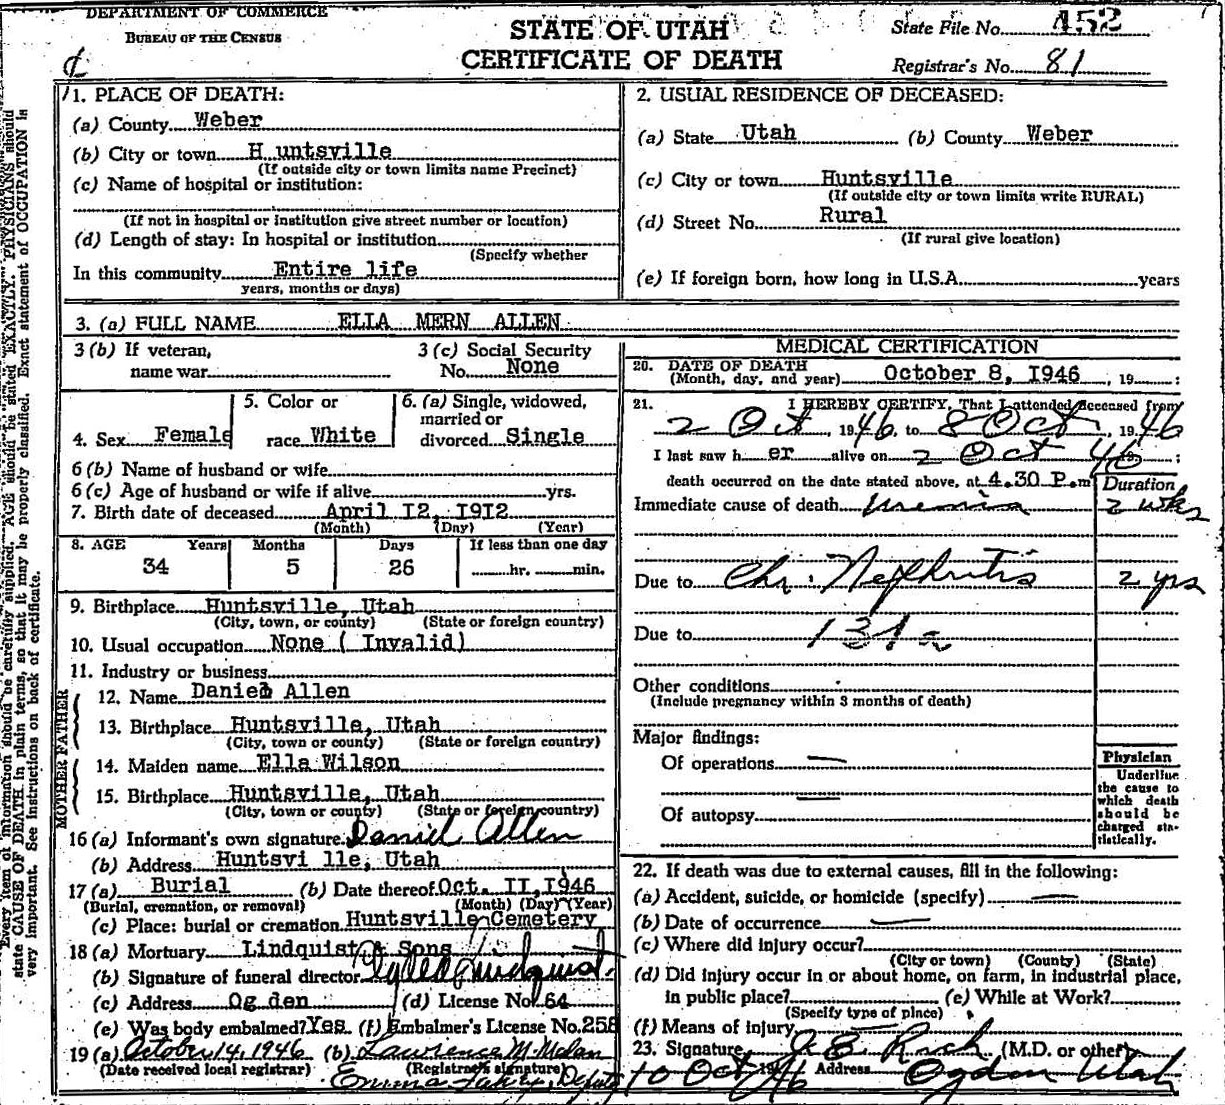 DEPARTMENT OF COMMERCE
BUREAU OF THE CENSUS
STATE OF UTAH
CERTIFICATE OF DEATH
State File No. 452
Registrar's No. 81
1. PLACE OF DEATH:
(a) County Weber
(b) City or town H untsville
(If outside city or town limits name Precinct)
(c) Name of hospital or institution:
(If not in hospital or institution give street number or location)
(d) Length of stay: In hospital or institution
(Specify whether
In this community Entire life
years, months or days)
2. USUAL RESIDENCE OF DECEASED:
(a) State Utah (b) County Weber
(c) City or town Huntsville
(If outside city or town limits write RURAL)
(d) Street No. Rural
(If rural give location)
(e) If foreign born, how long in U.S.A. years
3. (a) FULL NAME ELLA MERN ALLEN
3 (b) If veteran,
name war
3 (c) Social Security
No. None
4. Sex Female
5. Color or
race White
6. (a) Single, widowed,
married or
divorced Single
6 (b) Name of husband or wife
6 (c) Age of husband or wife if alive yrs.
7. Birth date of deceased April I2, I9I2
(Month) (Day) (Year)
8. AGE Years Months Days If less than one day
34 5 26 hr. min.
9. Birthplace Huntsville, Utah
(City, town, or county) (State or foreign country)
10. Usual occupation None ( Invalid)
11. Industry or business
FATHER
12. Name Daniel Allen
13. Birthplace Huntsville, Utah
(City, town or county) (State or foreign country)
MOTHER
14. Maiden name Ella Wilson
15. Birthplace Huntsville, Utah
(City, town or county) (State or foreign country)
16 (a) Informant's own signature Daniel Allen
(b) Address Huntsvi lle, Utah
17 (a) Burial (b) Date thereof Oct. II, I946
(Burial, cremation, or removal) (Month) (Day) (Year)
(c) Place: burial or cremation Huntsville Cemetery
18 (a) Mortuary Lindquist & Sons
(b) Signature of funeral director Lindquist
(c) Address Og den (d) License No. 64
(e) Was body embalmed? Yes (f) Embalmer's License No. 258
19 (a) October 14, 1946 (b) Lawrence M.
(Date received local registrar) (Registrar's signature)
Emma Deputy
MEDICAL CERTIFICATION
20. DATE OF DEATH
(Month, day, and year) October 8, I946, 19 :
21. I HEREBY CERTIFY, That I attended deceased from
2 Oct, 1946, to 8 Oct, 1946
I last saw h er alive on 2 Oct 46 19 ;
death occurred on the date stated above, at 4.30 P.m
Duration
Immediate cause of death Uremia 2 wks
Due to Chr. Nephritis 2 yrs
Due to 131a
Other conditions
(Include pregnancy within 3 months of death)
Major findings:
Of operations —
Of autopsy —
Physician
Underline
the cause to
which death
should be
charged sta-
tistically.
22. If death was due to external causes, fill in the following:
(a) Accident, suicide, or homicide (specify) —
(b) Date of occurrence —
(c) Where did injury occur?
(City or town) (County) (State)
(d) Did injury occur in or about home, on farm, in industrial place,
in public place? (e) While at Work?
(Specify type of place)
(f) Means of injury
23. Signature Rich (M.D. or other)
10 Oct 1946 Address Ogden Utah
Every item of information should be carefully supplied. AGE should be stated EXACTLY. PHYSICIANS should
state CAUSE OF DEATH in plain terms, so that it may be properly classified. Exact statement of OCCUPATION is
very important. See instructions on back of certificate.